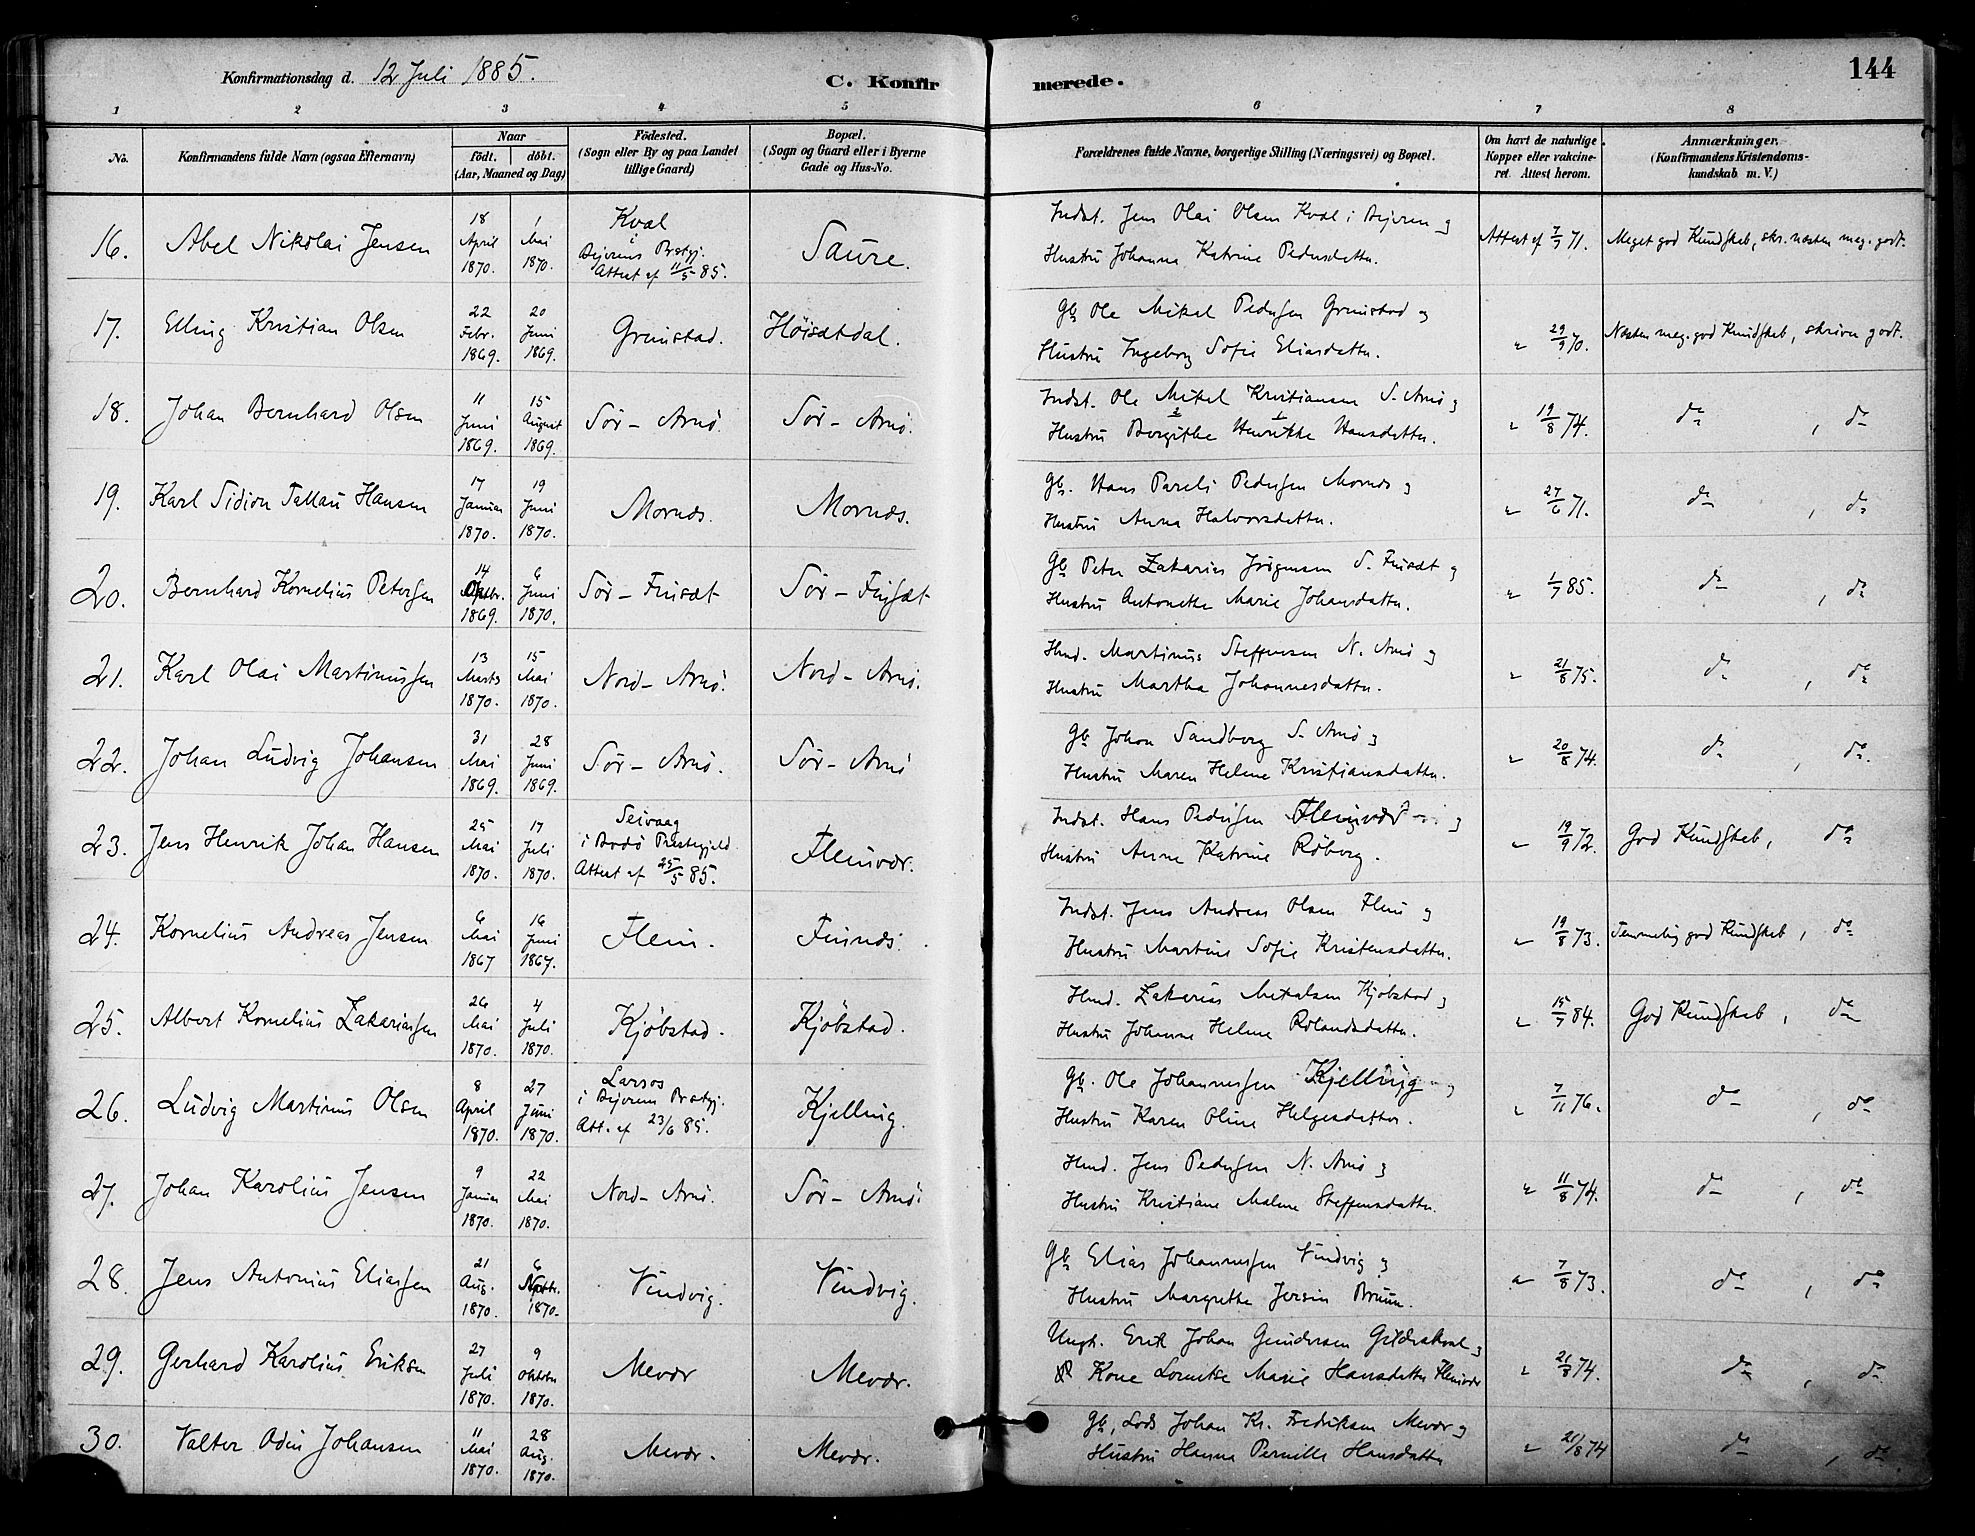 Konfirmationsdag d. 12 Juli 1885.
C. Konfirmerede.
144
1 2 3 4 5 6 7 8
No. Konfirmandens fulde Navn (ogsaa Efternavn) Naar födt. döbt. (Aar, Maaned og Dag) Födested. (Sogn eller By og paa Landet tillige Gaard) Bopæl. (Sogn og Gaard eller i Byerne Gade og Hus-No. Forældrenes fulde Navne, borgerlige Stilling (Næringsvei) og Bopæl. Om havt de naturlige Kopper eller vakcineret. Attest herom. Anmærkninger. (Konfirmandens Kristendomskundskab m. V.)
16. Abel Nikolai Jensen 18 April 1870. 1 Mai 1870. Kval i Bejerens Præstgj. Attest af 11/5 85. Saure. Indst. Jens Olai Olsen Kval i Bejeren og Hustru Johanna Katrine Pedersdatter. Attest af 7/7 71. Meget god Kundskab, skr. næsten meg. godt.
17. Elling Kristian Olsen 22 Febr. 1869. 20 Juni 1869. Grimstad. Höisætdal. Gb. Ole Mikal Pedersen Grimstad og Hustru Ingeborg Sofie Eliasdatter. " 29/9 70. Næsten meg. god Kundskab, skriver godt.
18. Johan Bernhard Olsen 11 Juni 1869. 15 August 1869. Sör-Arnö. Sör-Arnö. Indst. Ole Mikal Kristiansen S. Arnö og Hustru Bergithe 2 Henrikke 1 Hansdatter. " 19/8 74. do , do
19. Karl Sidion Tallau Hansen 17 Januar 1870. 19 Juni 1870. Mornæs. Mornæs. Gb. Hans Pareli Pedersen Mornæs og Hustru Anna Halvorsdatter. " 27/6 71. do , do
20. Bernhard Kornelius Petersen 14 Oktbr. 1869. 6 Juni 1870. Sör-Finsæt Sör-Finsæt Gb. Peter Zakarias Jörgensen S. Finsæt og Hustru Antonette Marie Johansdatter. " 1/7 85. do , do
21. Karl Olai Martinussen 13 Marts 1870. 15 Mai 1870. Nord-Arnö. Nord-Arnö. Hmd. Martinus Steffensen N. Arnö og Hustru Martha Johannesdatter. " 21/8 75. do , do
22. Johan Ludvig Johansen 31 Mai 1869. 28 Juni 1869. Sör-Arnö. Sör-Arnö Gb. Johan Sandberg S. Arnö og Hustru Maren Helene Kristiansdatter. " 20/8 74. do , do.
23. Jens Henrik Johan Hansen 25 Mai 1870. 17 Juli 1870. Seivaag i Bodö Præstegjeld Attest af 25/5 85. Fleinvær. Indst. Hans Pedersen Fleinvær og Hustru Anne Katrine Röberg. " 19/9 72. God Kundskab, do
24. Kornelius Andreas Jensen 6 Mai 1867 16 Juni 1867. Flein. Finnæs. Indst. Jens Andreas Olsen Flein og Hustru Martine Sofie Kristensdatter. " 19/8 73. Temmelig god Kundskab, do
25. Albert Kornelius Zakariassen 26 Mai 1870. 4 Juli 1870. Kjöbstad. Kjöbstad. Hmd. Zakarias Mikalsen Kjöbstad og Hustru Johanna Helene Rolandsdatter. " 15/7 84. God Kundskab, do
26. Ludvig Martinus Olsen 8 April 1870. 27 Juni 1870. Larsos i Bejerens Præstgj. Att. af 23/6 85. Kjelling. Gb. Ole Johannessen Kjelling og Hustru Karen Oline Helgesdatter. " 7/11 76. do , do
27. Johan Karolius Jensen 9 Januar 1870. 22 Mai 1870. Nord-Arnö. Sör-Arnö. Hmd. Jens Pedersen N. Arnö og Hustru Kristiane Malene Steffensdatter. " 11/8 74. do , do
28 Jens Antonius Eliassen 21 Aug. 1870 6 Novbr. 1870. Vindvig. Vindvig. Gb. Elias Johannessen Vindvig og Hustru Margrethe Jersin Bruun. " 7/8 73. do , do
29. Gerhard Karolius Eriksen 27 Juli 1870. 9 Oktober 1870. Mevær Mevær. Ungk. Erik Johan Gundersen Gildeskaal og Kone Lornetse Marie Hansdatter Fleinvær " 21/8 74. do , do
30. Valter Odin Johansen 11 Mai 1870. 28 Aug. 1870. Mevær. Mevær. Gb, Lods Johan Kr. Fredriksen Mevær og Hustru Hanna Pernille Hansdatter " 21/8 74 do , do